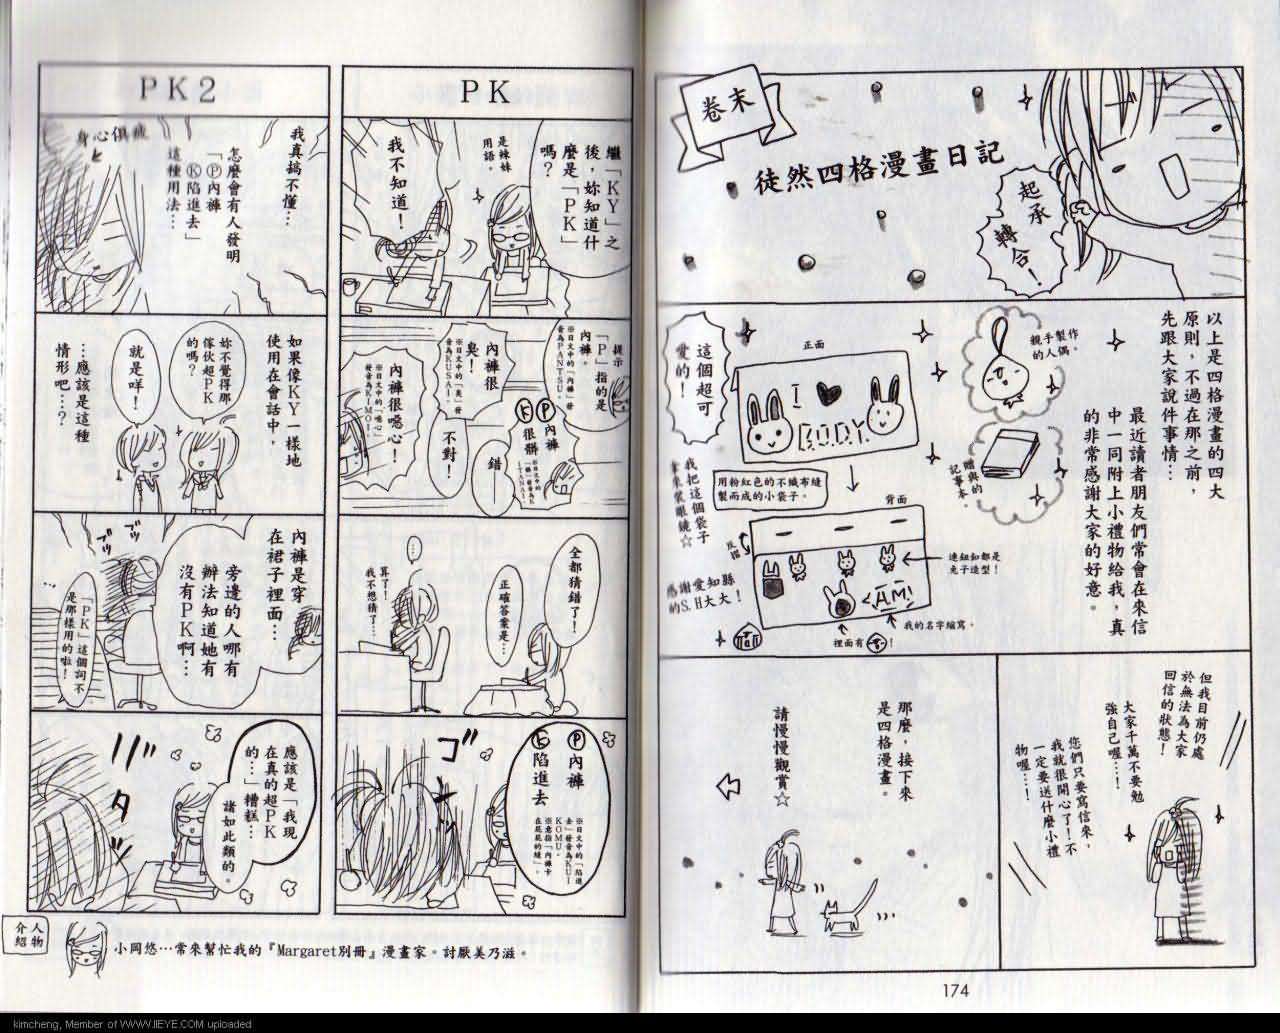 卷末
徒然四格漫畫日記
起承
轉合！
以上是四格漫畫的四大
原則，不過在那之前，
先跟大家說件事情…
最近讀者朋友們常會在來信
中一同附上小禮物給我，真
的非常感謝大家的好意。
親手製作
的人偶。
贈與的
記事本。
這個超可
愛的！
正面
I ♥
BODY
用粉紅色的不織布縫
製而成的小袋子。
我把這個袋子
拿來裝眼鏡☆
背面
連鈕釦都是
兔子造型！
AM!
我的名字縮寫。
裡面有
！
感謝愛知縣
的S.H大大！
但我目前仍處
於無法為大家
回信的狀態！
大家千萬不要勉
強自己喔…！
您們只要寫信來，
我就很開心了！不
一定要送什麼小禮
物喔…！
那麼，接下來
是四格漫畫。
請慢慢觀賞☆
174
PK
繼「KY」之
後，妳知道什
麼是「PK」
嗎？
是辣妹
用語。
我不知道！
提示
「P」指的是
內褲。
※日文中的「內褲」發
音為PANTSU。
Ⓟ內褲
Ⓚ很髒
內褲很
臭！
※日文中的「臭」發
音為KUSAI。
不對！
錯
內褲很噁心！
※日文中的「噁心」
發音為KIMOI。
全都猜錯了！
正確答案是…
…
算了！
我不想猜了…
Ⓟ內褲
Ⓚ陷進去
※日文中的「陷進
去」發音為KUI
KOMU。
※意指「內褲卡
在屁屁的縫」。
ゴ
PK2
我真搞不懂…
怎麼會有人發明
「Ⓟ內褲
Ⓚ陷進去」
這種用法…
身心俱疲
如果像KY一樣地
使用在會話中，
妳不覺得那
傢伙超PK
的嗎？
就是咩！
…應該是這種
情形吧…？
內褲是穿
在裙子裡面…
旁邊的人哪有
辦法知道她有
沒有PK啊…
ブツ
ブツ
…
「PK」這個詞不
是那樣用的啦！
應該是「我現
在真的超PK
的…」糟糕…
諸如此類的。
人物
介紹
小岡悠…常來幫忙我的『Margaret別冊』漫畫家。討厭美乃滋。
kimcheng, Member of WWW.IIEYE.COM uploaded